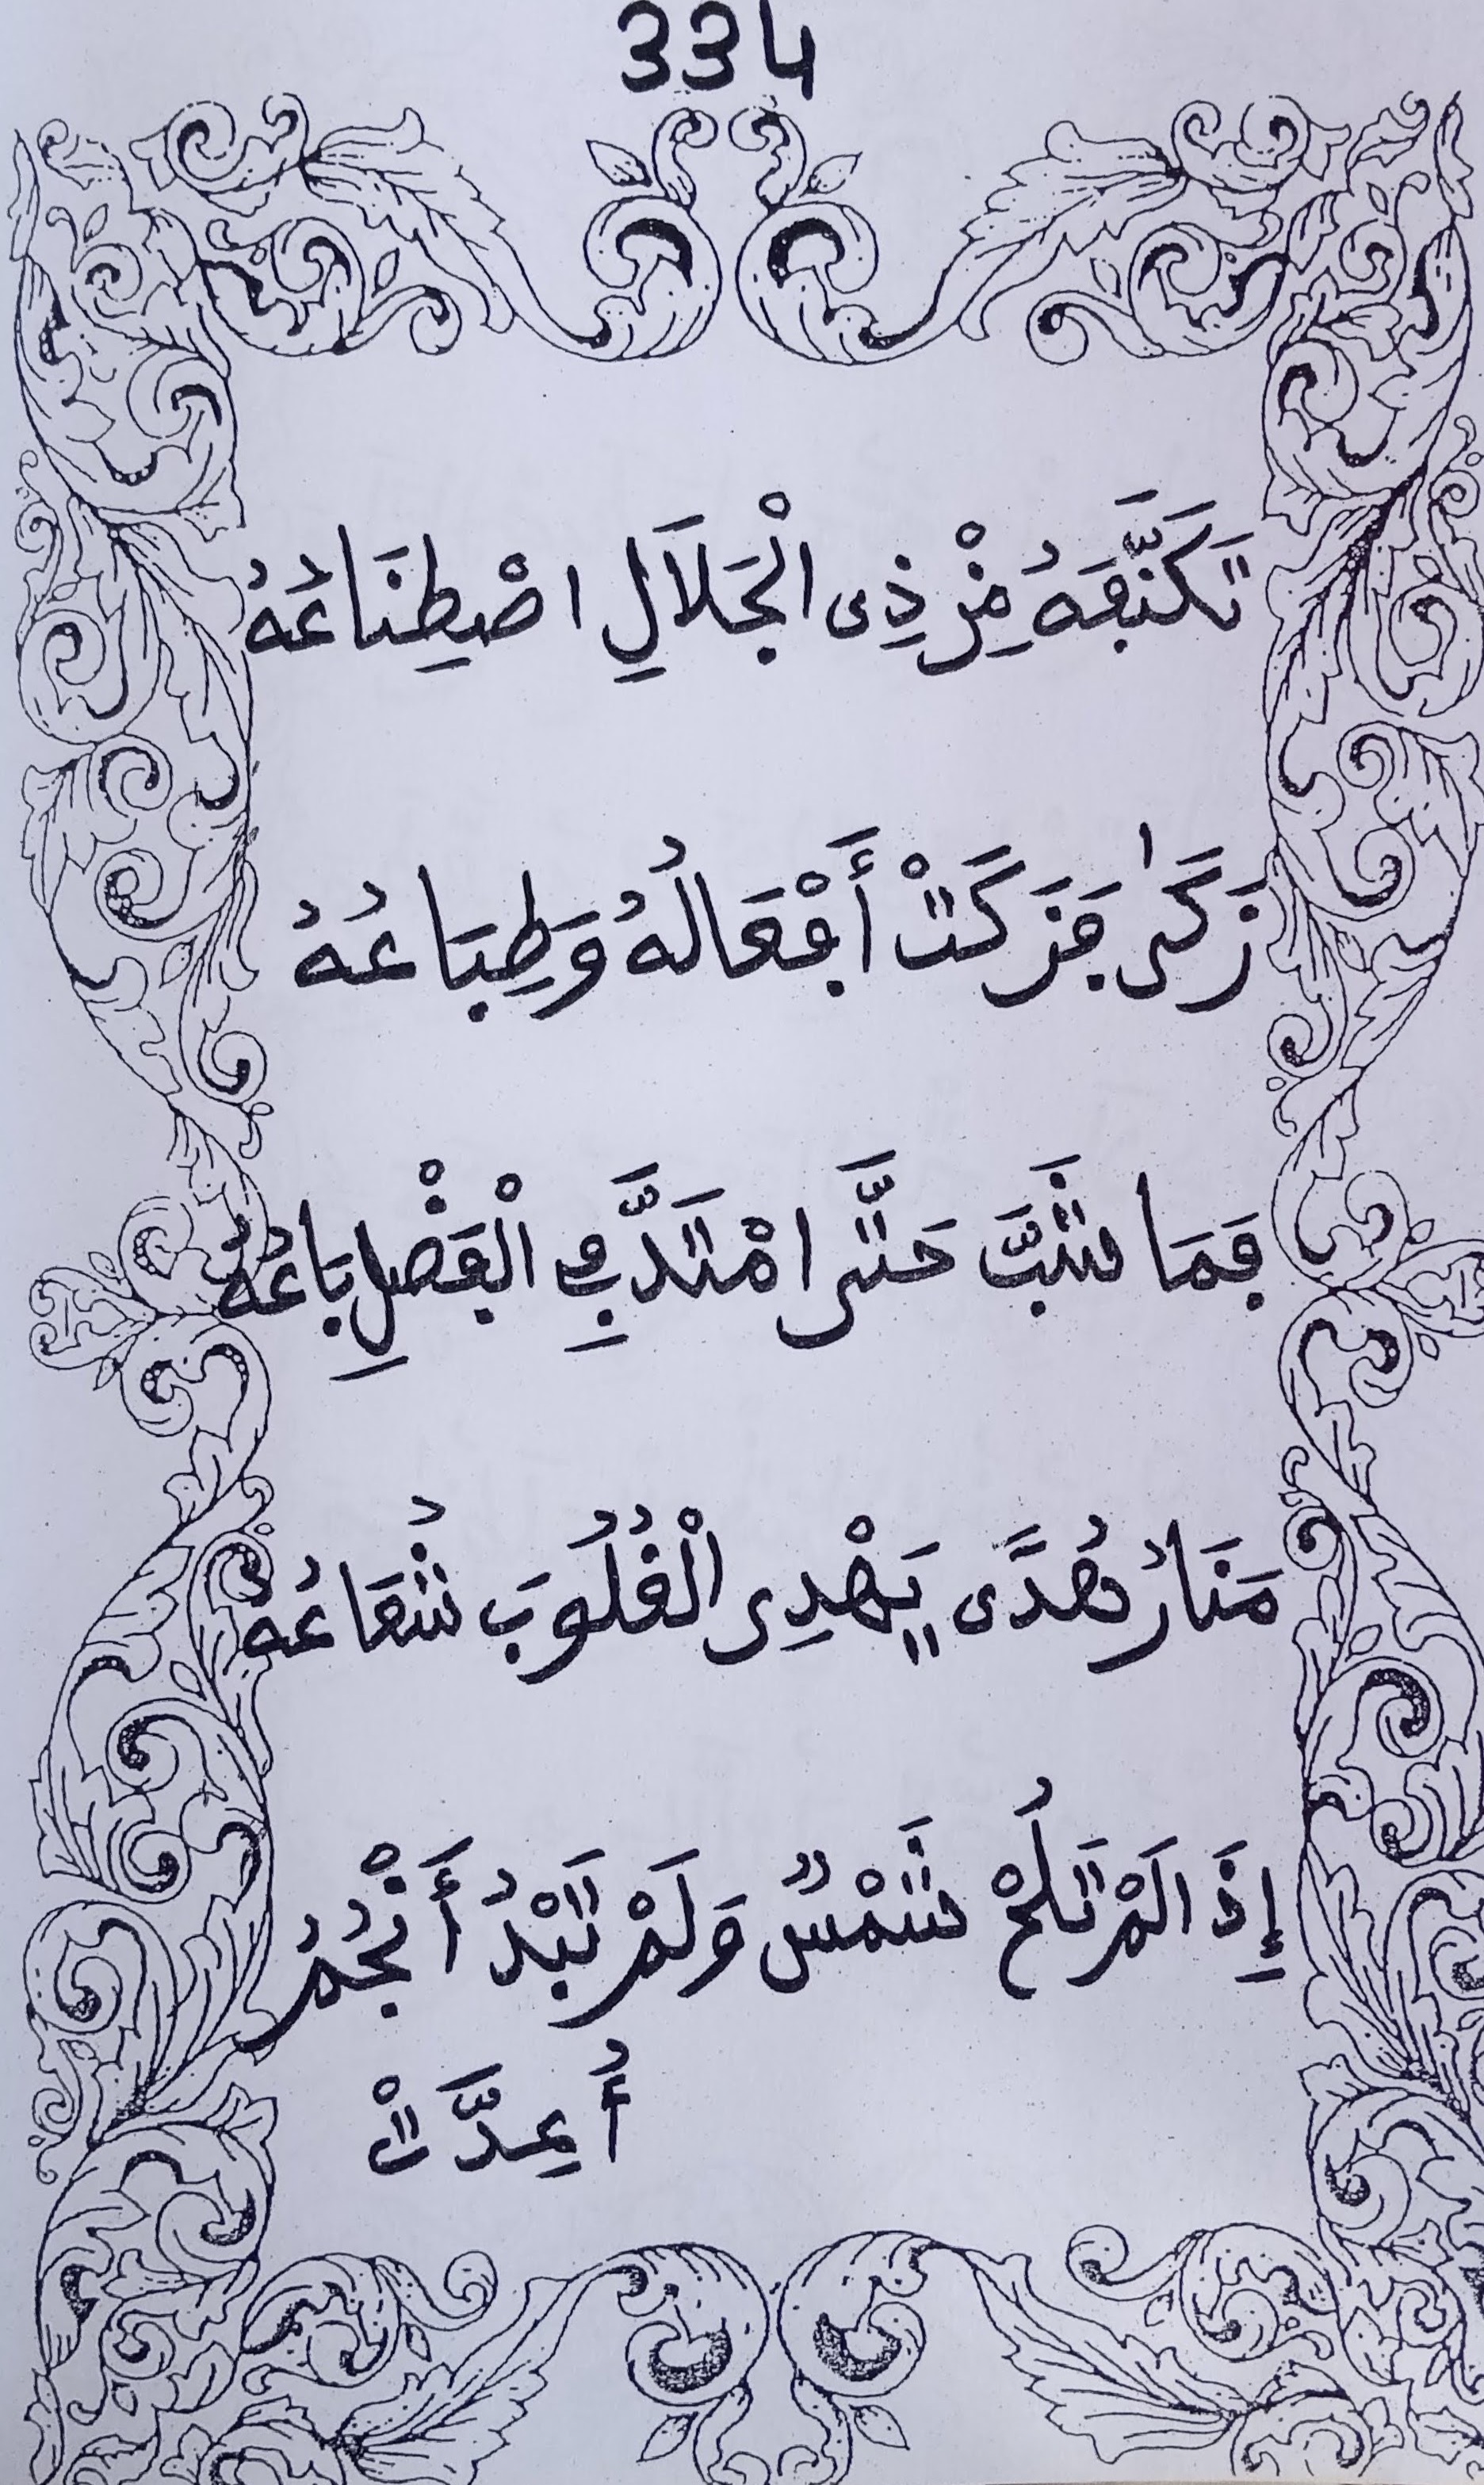 334
تَكَنَّفَهُ مِنْ ذِى الْجَلاَلِ اصْطِنَاعُهُ
زَكَىٰ فَزَكَتْ أَفْعَالُهُ وَطِبَاعُهُ
فَمَا شَبَّ حَتَّى امْتَدَّ فِي الْفَضْلِ بَاعُهُ
مَنَارُ هُدًى يَهْدِى الْقُلُوبَ شُعَاعُهُ
إِذَا لَمْ تَلُحْ شَمْسٌ وَلَمْ تَبْدُ أَنْجُمُ
أُعِدَّتْ